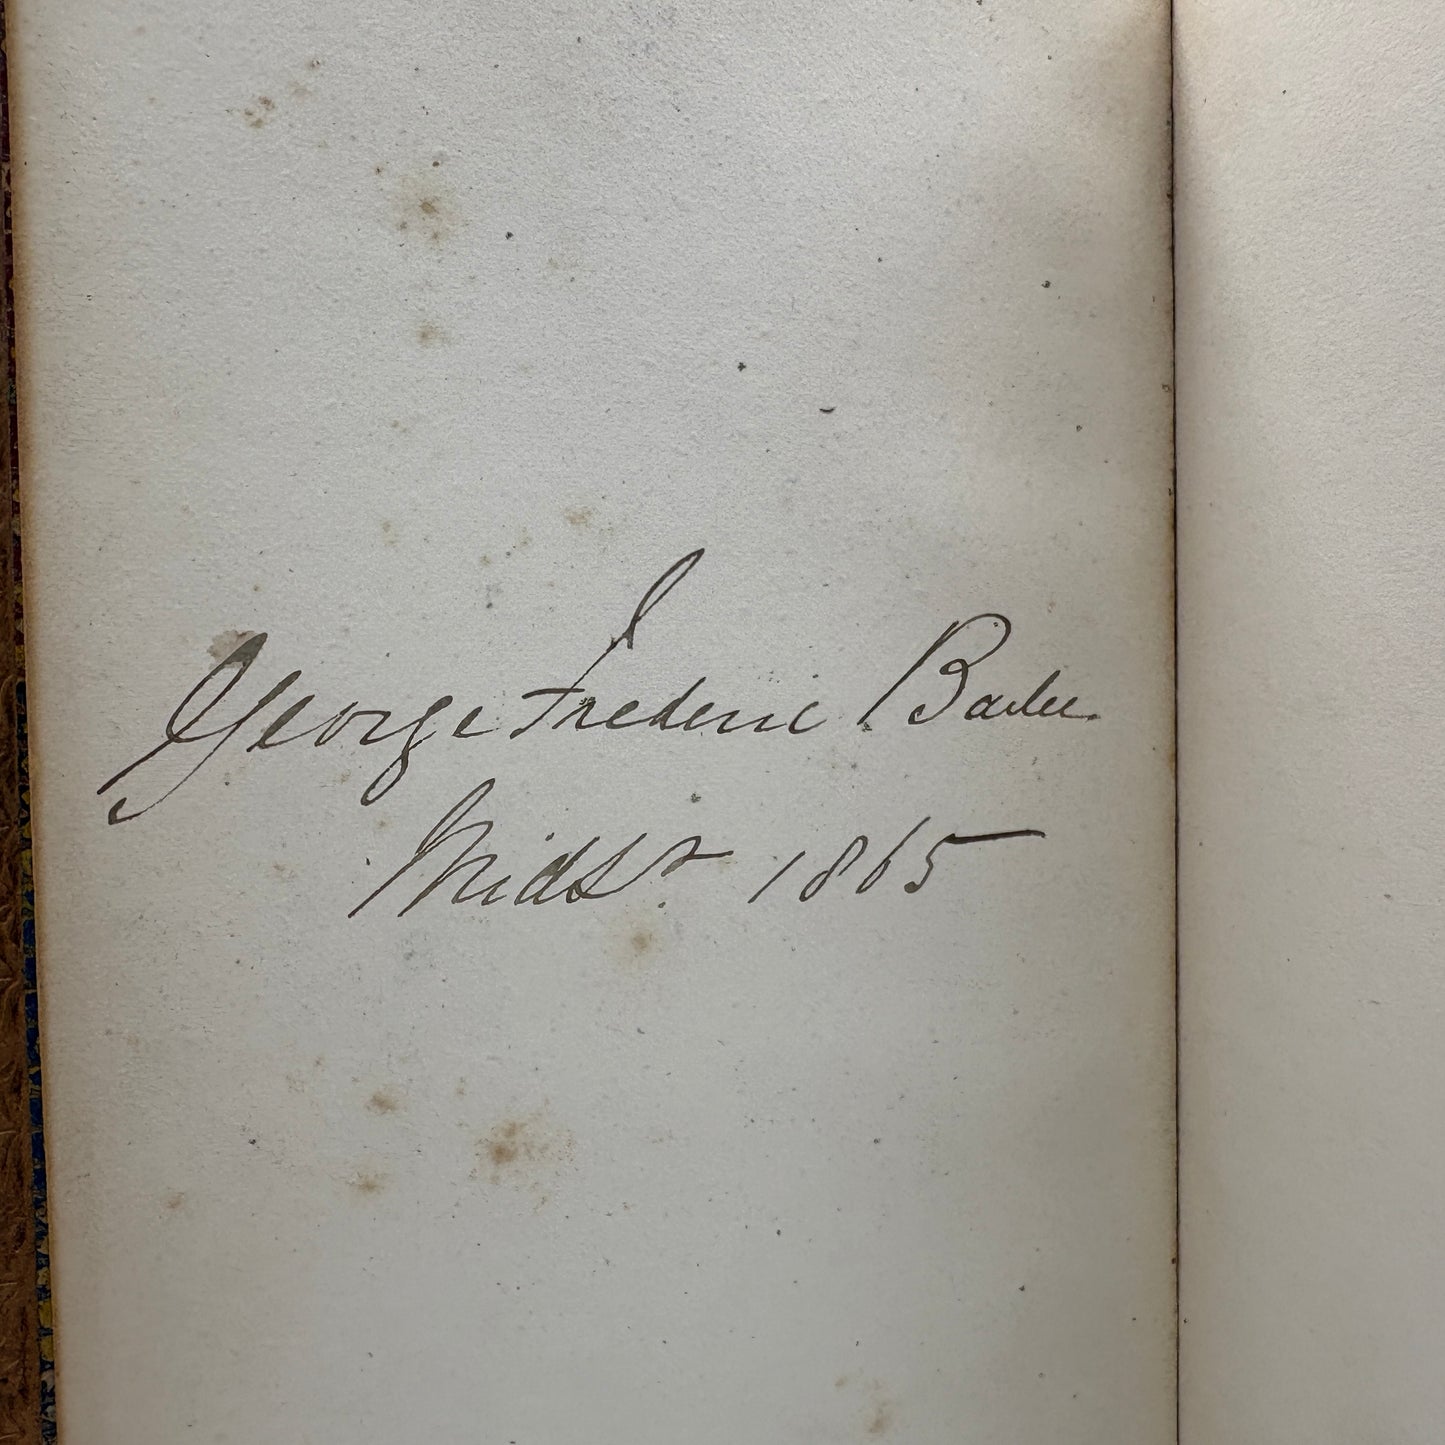 George Frederic
Midsr. 1865